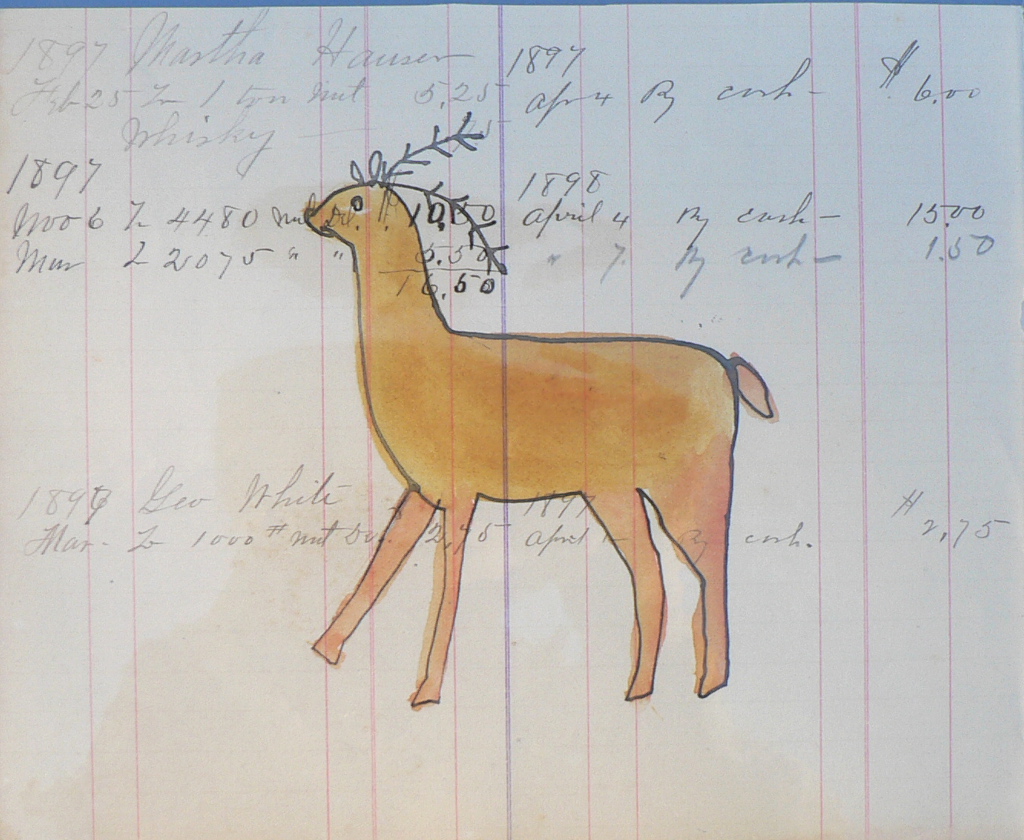 1897 Martha Hauser 1897 $
Feb 25 To 1 ton nut 5.25 Apr 4 By cash - 6.00
Whisky — 
1897 1898
Nov 6 To 4480 nut 10.50 April 4 By cash - 15.00
Mar 2075 " " 5.50 " 7. By cash - 1.50
16.50
Geo White 1897 #
Mar. To 1000 # nut 2,75 April By cash. 2,75